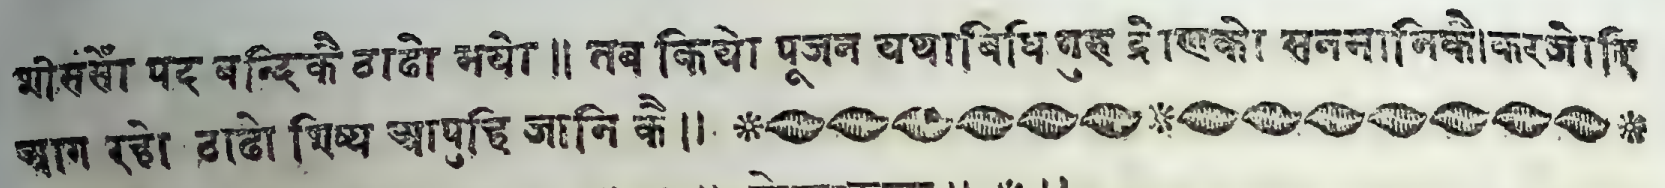 भीससों पद बन्दिकै ठाढो भयो ॥ तब कियो पूजन यथाबिधि गुरु द्रोणको सनमानिकै । करजोरि
आग रहो ठाढो शिष्य आपुहि जानि कै ॥